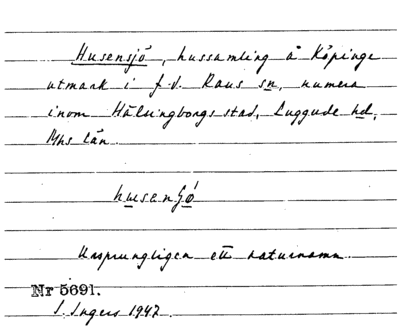 Husensjö, hussamling å Köpinge
utmark i f.d. Raus sn, numera
inom Hälsingborgs stad, Luggude hd,
Mhs län.
husensjö
Ursprungligen ett naturnamn.
Nr 5691.
I. Ingers 1947.